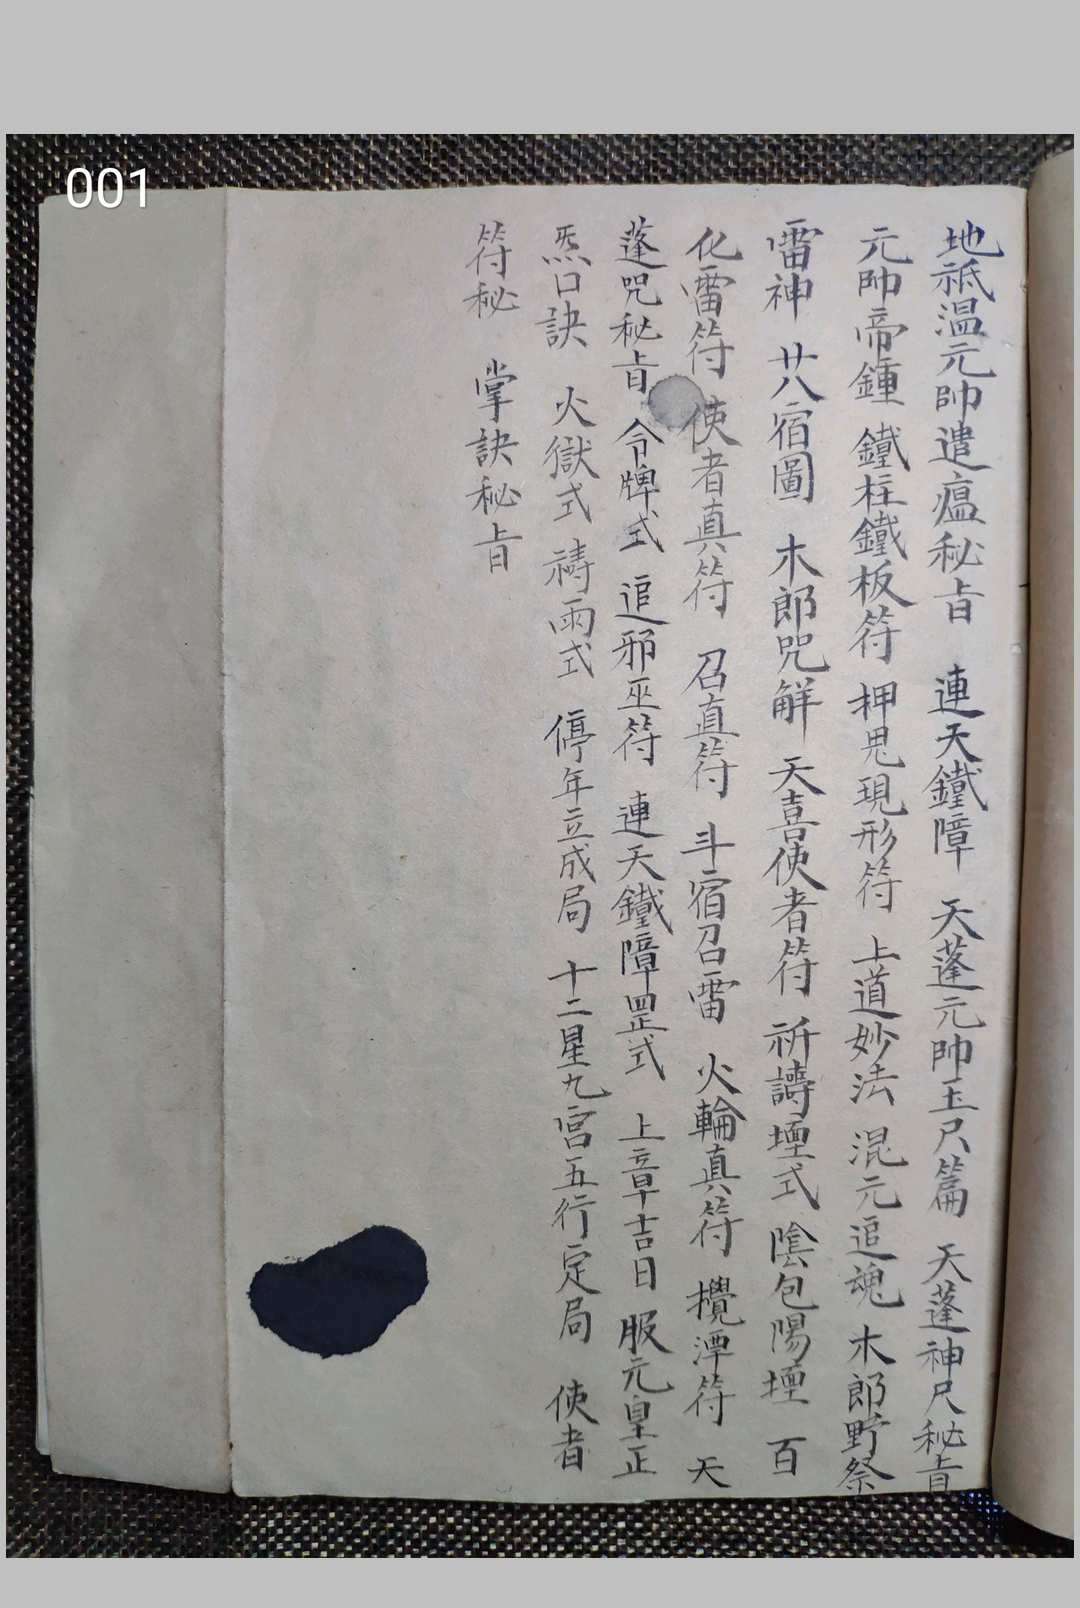 001
地祇溫元帥遣瘟秘旨 連天鐵障 天蓬元帥玉尺篇 天蓬神尺秘旨
元帥帝鍾 鐵柱鐵板符 押鬼現形符 上道妙法 混元追魂 木郎野祭
雷神 廿八宿圖 木郎咒解 天喜使者符 祈禱壇式 陰包陽壇 百
化雷符 使者真符 召直符 斗宿召雷 火輪真符 攪潭符 天
蓬咒秘旨 令牌式 追邪巫符 連天鐵障罡式 上章吉日 服元皇正
炁口訣 火獄式 禱雨式 停年立成局 十二星九宮五行定局 使者
符秘 掌訣秘旨